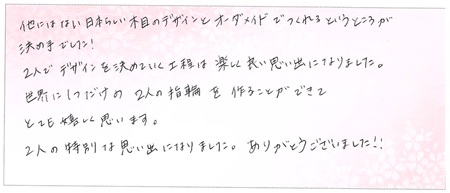 他にはない日本らしい木目のデザインとオーダメイドでつくれるというところが
決め手でした！
2人でデザインを決めていく工程は楽しく良い思い出になりました。
世界に1つだけの2人の指輪を作ることができて
とても嬉しく思います。
2人の特別な思い出になりました。ありがとうございました!!